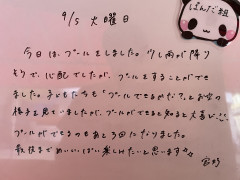 9/5 火曜日
ぱんだ組
今日は、プールをしました。少し雨が降り
そうで、心配でしたが、プールをすることができ
ました。子どもたちも「プールできるかな?」とお空の
様子を見ていましたが、プールができると知ると大喜び
プールができるのもあと3回になりました。
最後までめいいっぱい楽しみたいと思います